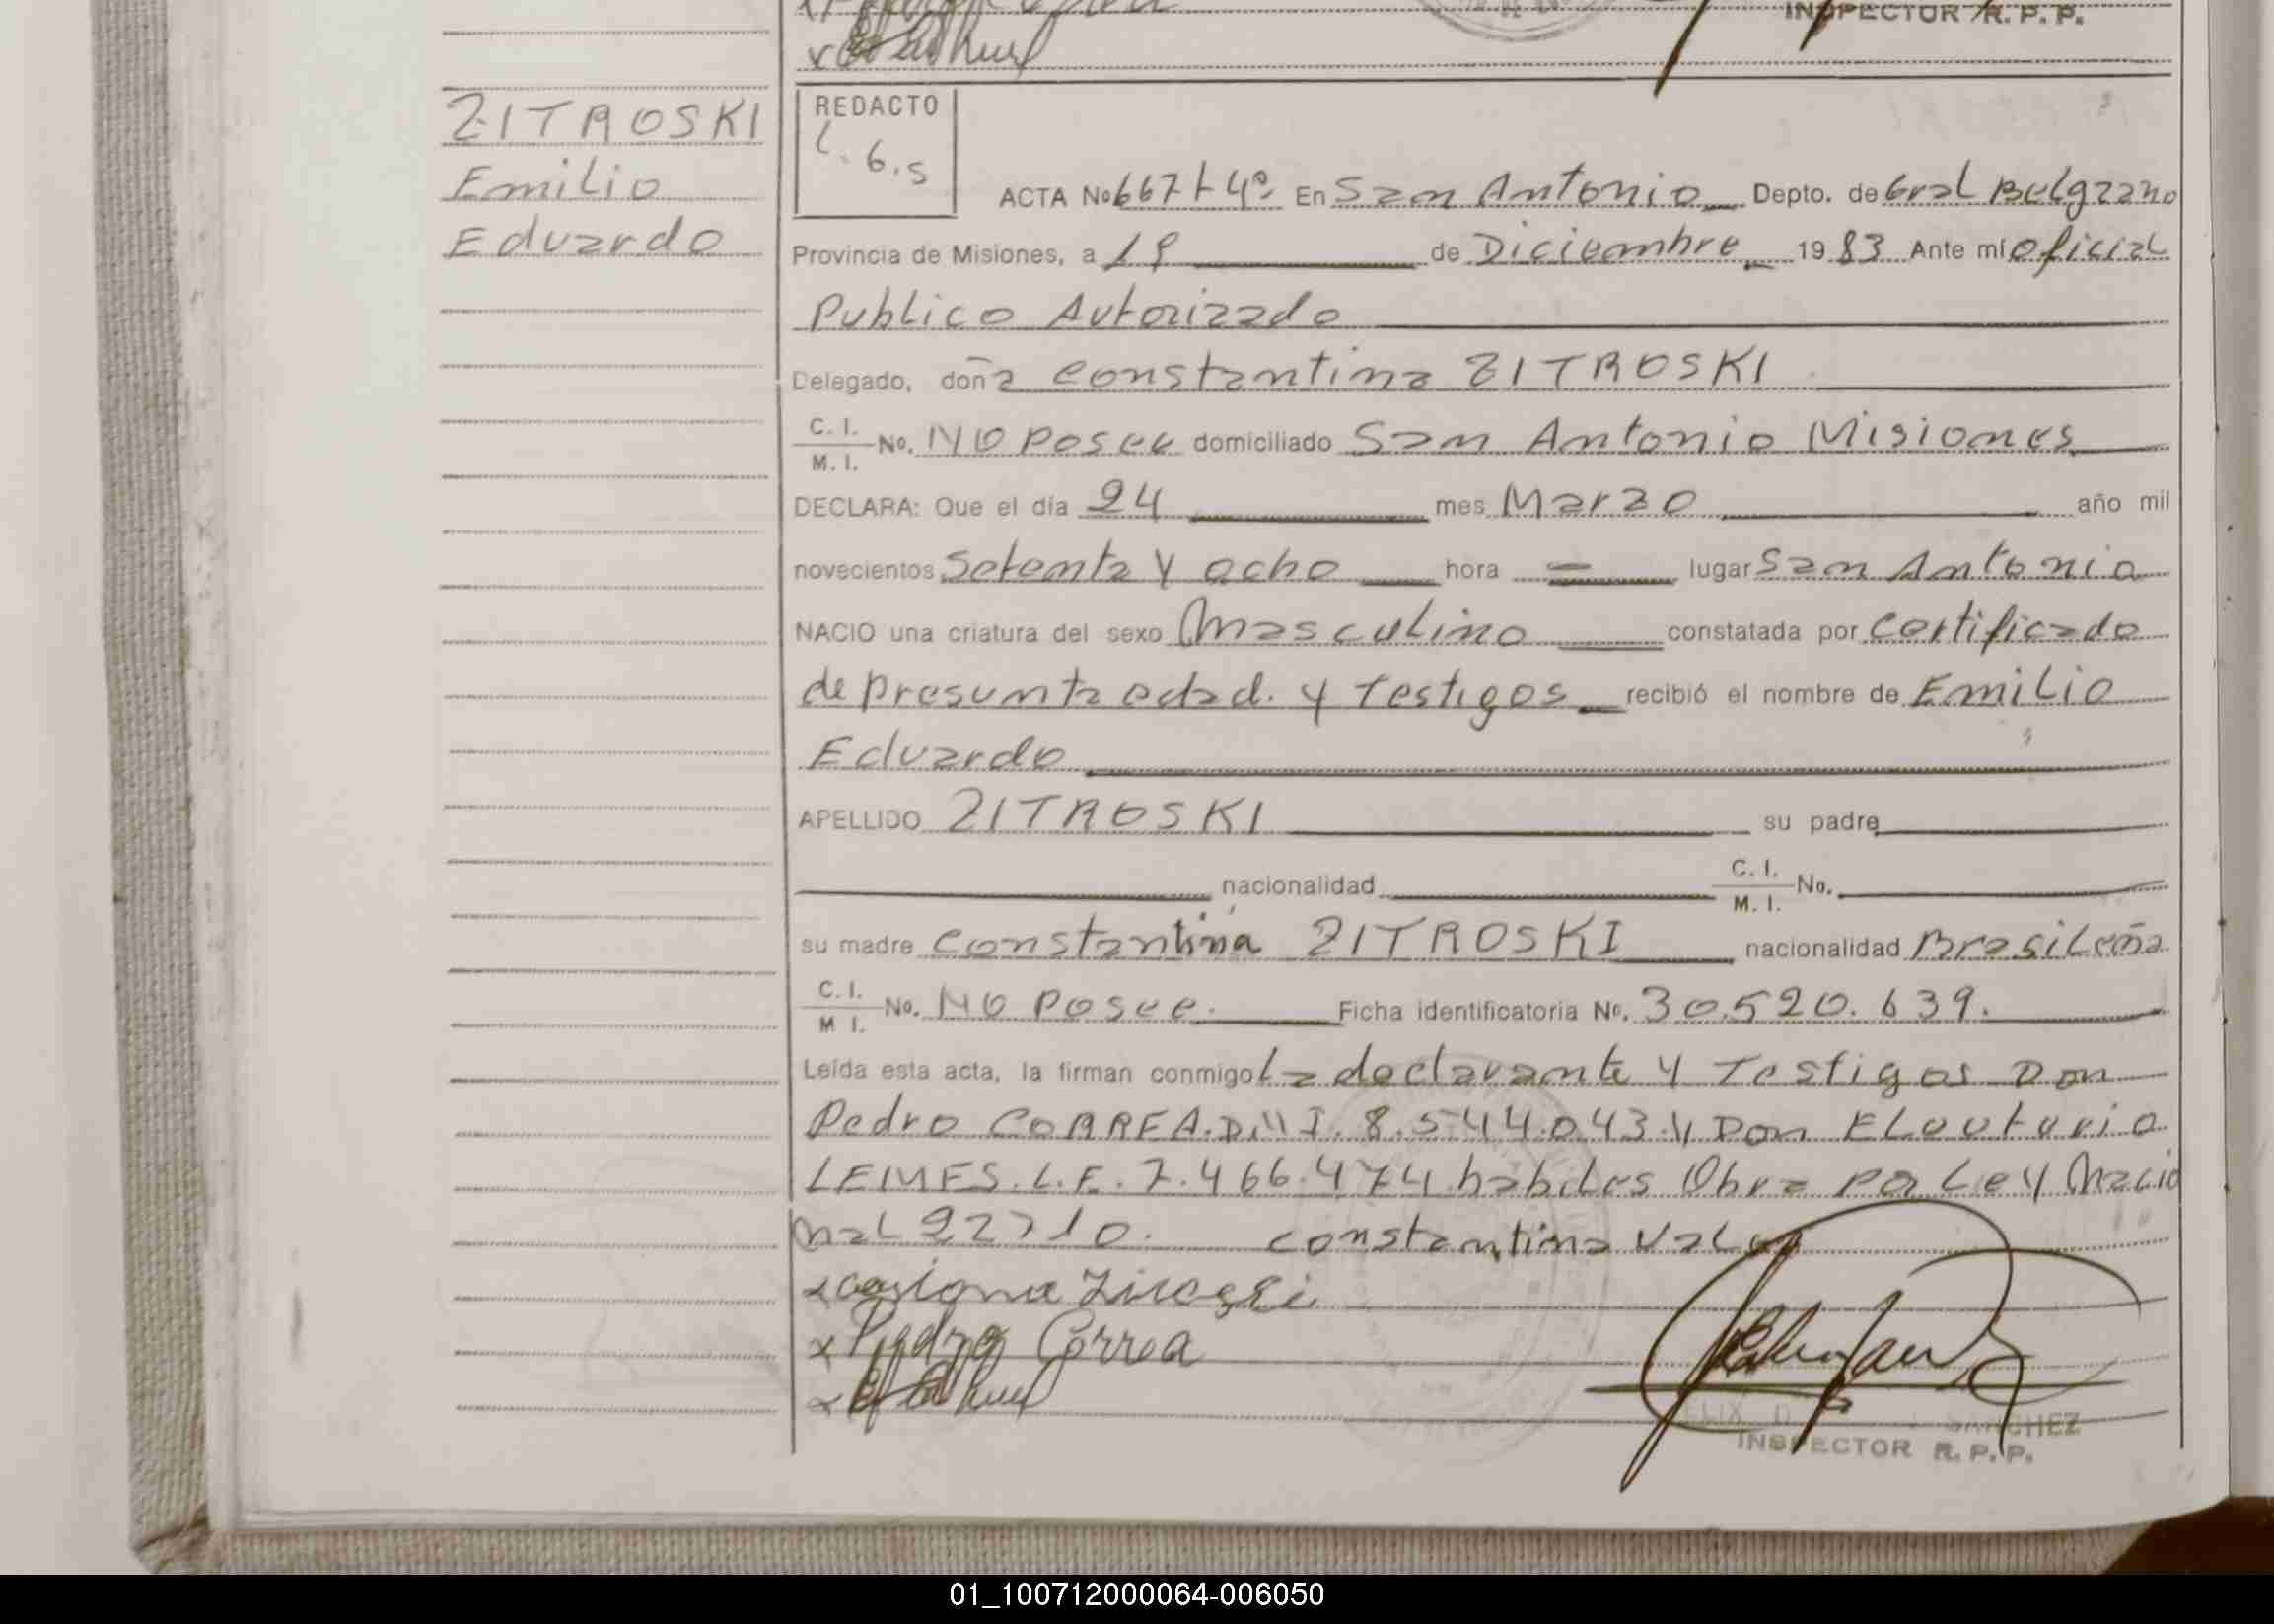 INSPECTOR R. P. P.
ZITROSKI
Emilio
Eduardo
REDACTO
L.G.S
ACTA No 667 T 4º En San Antonio Depto. de Gral Belgrano
Provincia de Misiones, a 19 de Diciembre 1983 Ante mí oficial
Publico Autorizado
Delegado, doña Constantina ZITROSKI
C. I.
M. I. No. No posee domiciliado San Antonio Misiones
DECLARA: Que el día 24 mes Marzo año mil
novecientos Setenta y ocho hora = lugar San Antonio
NACIO una criatura del sexo Masculino constatada por Certificado
de presunta edad. y Testigos recibió el nombre de Emilio
Eduardo
APELLIDO ZITROSKI su padre
nacionalidad C. I.
M. I. No.
su madre Constantina ZITROSKI nacionalidad Brasileña
C. I.
M I. No. No posee. Ficha identificatoria Nº. 30.520.639.
Leída esta acta, la firman conmigo La declarante y Testigos Don
Pedro CORREA. D.N.I. 8.544.043. y Don Eleuterio
LEMES. L.E. 7.466.474 habiles Obra por Ley Nacio
nal 22710. Constantina Vale
x Pedro Correa
SANCHEZ
INSPECTOR R. P. P.
01_100712000064-006050